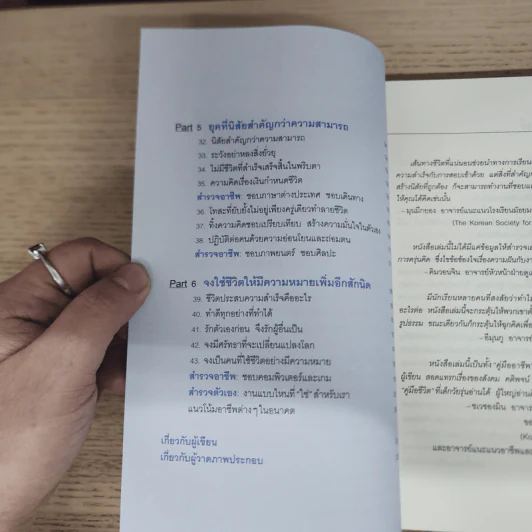 Part 5 ยุคที่นิสัยสำคัญกว่าความสามารถ
32. นิสัยสำคัญกว่าความสามารถ
33. ระวังอย่าหลงสิ่งยั่วยุ
34. ไม่มีชีวิตที่สำเร็จเสร็จสิ้นในพริบตา
35. ความคิดเรื่องเงินกำหนดชีวิต
สำรวจอาชีพ: ชอบภาษาต่างประเทศ ชอบเดินทาง
36. โทสะที่ยับยั้งไม่อยู่เพียงครู่เดียวทำลายชีวิต
37. ทิ้งความคิดชอบเปรียบเทียบ สร้างความมั่นใจในตัวเอง
38. ปฏิบัติต่อคนด้วยความอ่อนโยนและถ่อมตน
สำรวจอาชีพ: ชอบภาพยนตร์ ชอบศิลปะ
Part 6 จงใช้ชีวิตให้มีความหมายเพิ่มอีกสักนิด
39. ชีวิตประสบความสำเร็จคืออะไร
40. ทำดีทุกอย่างที่ทำได้
41. รักตัวเองก่อน จึงรักผู้อื่นเป็น
42. จงมีศรัทธาที่จะเปลี่ยนแปลงโลก
43. จงเป็นคนที่ใช้ชีวิตอย่างมีความหมาย
สำรวจอาชีพ: ชอบคอมพิวเตอร์และเกม
สำรวจตัวเอง: งานแบบไหนที่ "ใช่" สำหรับเรา
แนวโน้มอาชีพต่างๆ ในอนาคต
เกี่ยวกับผู้เขียน
เกี่ยวกับผู้วาดภาพประกอบ
เส้นทางชีวิตที่แน่นอนช่วยนำทางการเรียน
ความสำเร็จกับการสอบเข้าด้วย แต่สิ่งที่สำคัญ
สร้างนิสัยที่ถูกต้อง ก็จะสามารถทำงานที่ชอบและ
ให้คุณได้คิดเช่นนั้น
(The Korean Society for
หนังสือเล่มนี้ไม่ได้มีแค่ข้อมูลให้สำรวจ
การครุ่นคิด ซึ่งใช้ข้อข้องใจเรื่องความฝันกับงา
มีนักเรียนหลายคนที่สงสัยว่าทำไม
อะไรต่อ หนังสือเล่มนี้จะกระตุ้นให้พวกเขา
รูปธรรม ขณะเดียวกันก็กระตุ้นให้ลูกคิดเพื่อ
หนังสือเล่มนี้เป็นทั้ง "คู่มืออาชีพ
ผู้เขียน สอดแทรกเรื่องของสังคม คติพจน์
"คู่มือชีวิต" ที่เด็กวัยรุ่นอ่านได้ ผู้ใหญ่อ่าน
และอาจารย์แนะแนวอาชีพและ